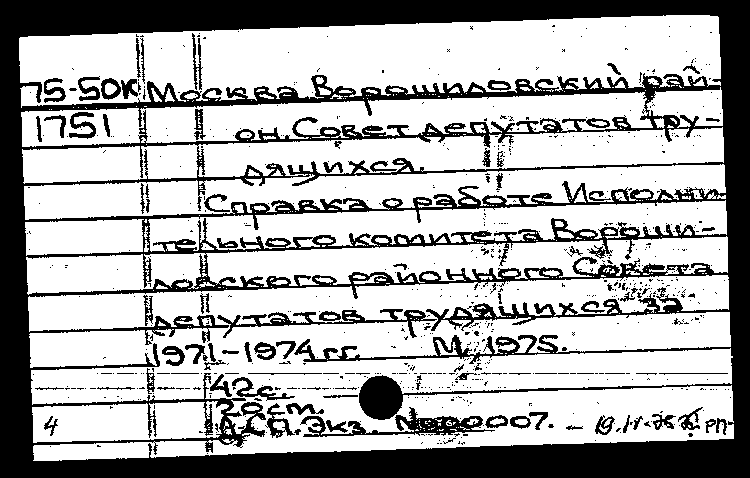 75-50к Москва Ворошиловский рай-
1751 он. Совет депутатов тру-
дящихся.
Справка о работе Исполни-
тельного комитета Вороши-
ловского районного Совета
депутатов трудящихся за
1971-1974 гг. М. 1975.
42с.
20см.
4 ДСП. Экз. №000007. –